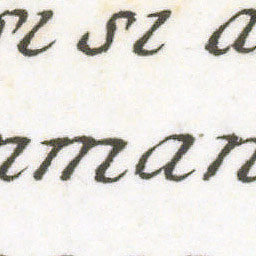 si si a
nman